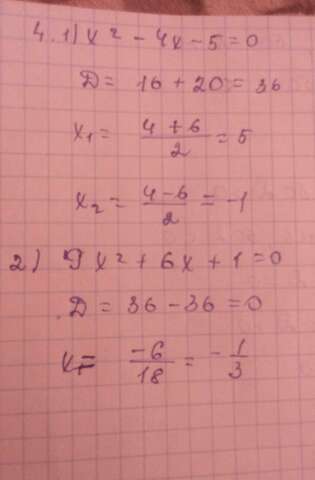 4. 1) x² - 4x - 5 = 0
D = 16 + 20 = 36
x₁ = (4+6)/2 = 5
x₂ = (4-6)/2 = -1
2) 9x² + 6x + 1 = 0
D = 36 - 36 = 0
x = -6/18 = -1/3